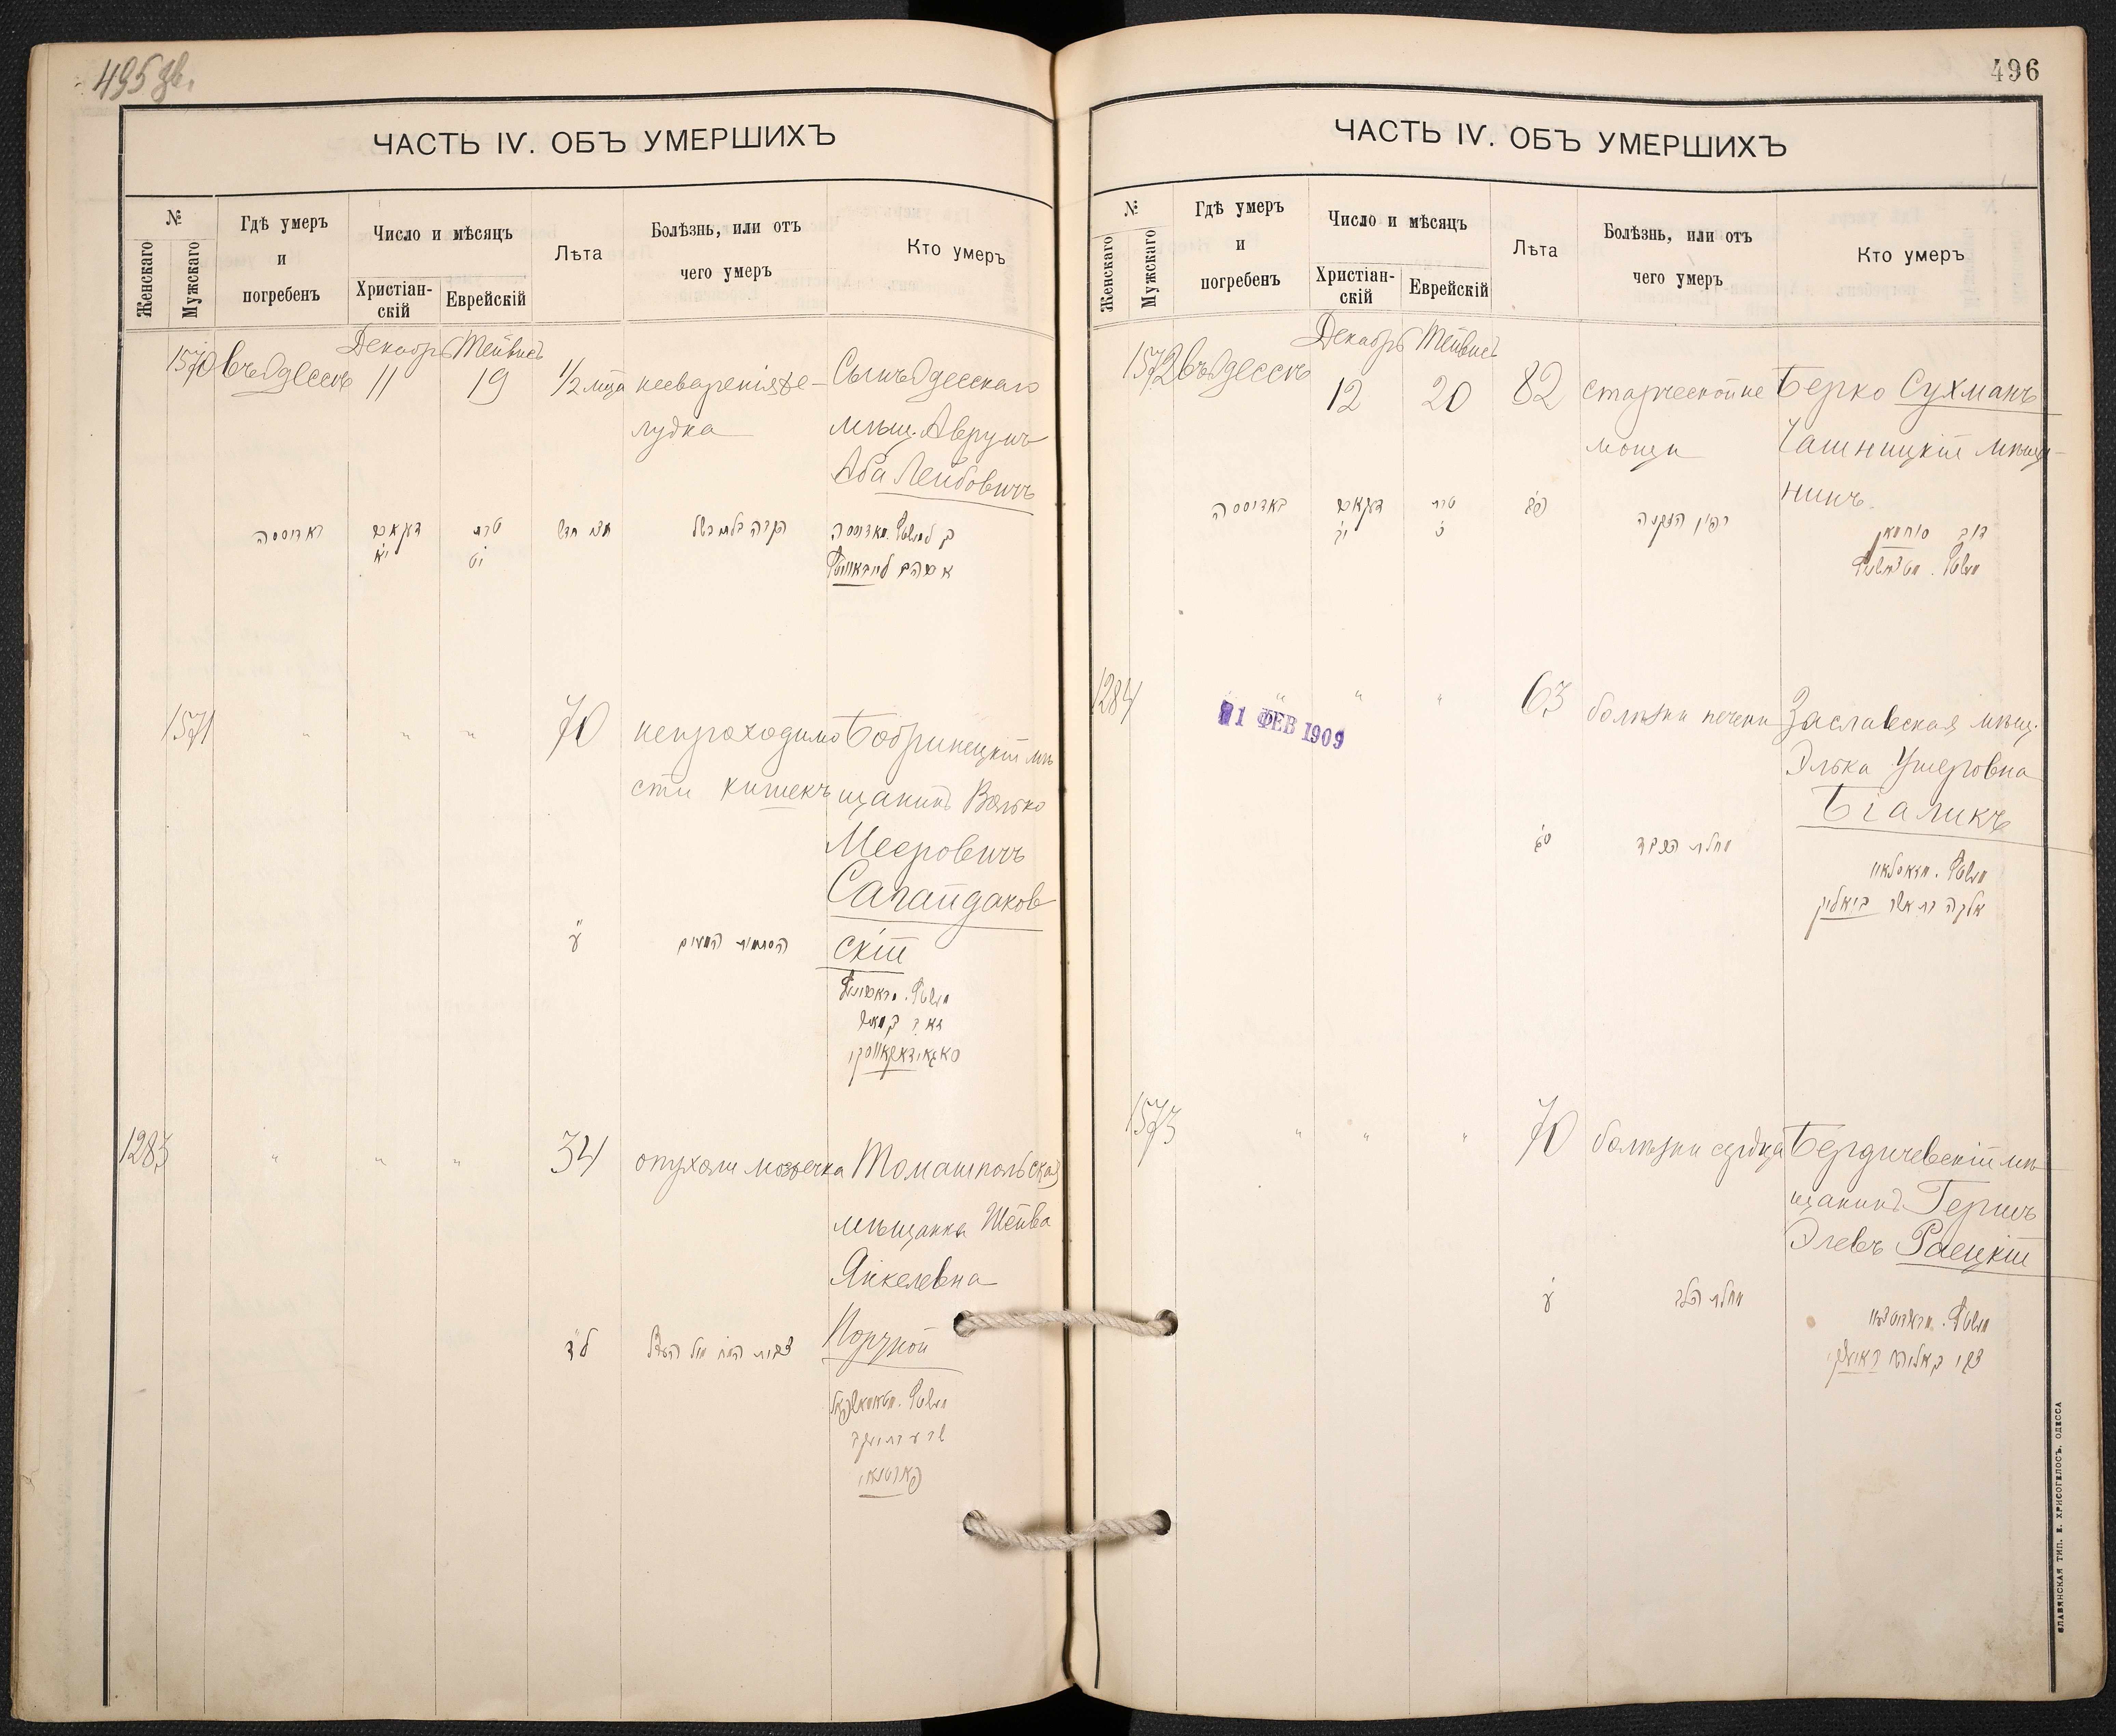 495 зв.
ЧАСТЬ IV. ОБЪ УМЕРШИХЪ
№
Женскаго
Мужскаго
Гдѣ умеръ
и
погребенъ
Число и мѣсяцъ
Христіан-
скій
Еврейскій
Лѣта
Болѣзнь, или отъ
чего умеръ
Кто умеръ
1570
въ Одессѣ
Декабрь
11
Тейвисъ
19
1/2 мца
несваренія же-
лудка
Сынъ Одесскаго
мѣщ. Аврумъ
Аба Лейбовичъ
באדיססה
דעקאמ
יא
טבת
יט
חצי חדש
1571
"
"
"
70
непроходимо
сти кишекъ
Бобринецкій мѣ
щанинъ Волько
Мееровичъ
Сагайдаков
скій
ע
1283
"
"
"
34
опухоли мозжечка
Томашпольская
мѣщанка Шейва
Янкелевна
Портной
לד
496
ЧАСТЬ IV. ОБЪ УМЕРШИХЪ
№
Женскаго
Мужскаго
Гдѣ умеръ
и
погребенъ
Число и мѣсяцъ
Христіан-
скій
Еврейскій
Лѣта
Болѣзнь, или отъ
чего умеръ
Кто умеръ
1572
въ Одессѣ
Декабрь
12
Тейвисъ
20
82
старческой не
мощи
Берко Сухманъ
Чашницкій мѣща-
нинъ
באדיססה
דעקאמ
יב
טבת
כ
פב
רפיון הזקנה
דוב סוחמאן
1284
"
"
"
1 ФЕВ 1909
63
болѣзни печени
Заславская мѣщ.
Элька Ушеровна
Бялікъ
סג
מחלת הכבד
אלקה בת אשר ביאליק
1573
"
"
"
70
болѣзни сердца
Бердичевскій мѣ
щанинъ Гершъ
Элевъ Раецкій
ע
מחלת הלב
СЛАВЯНСКАЯ ТИП. Е. ХРИСОГЕЛОСЪ, ОДЕССА